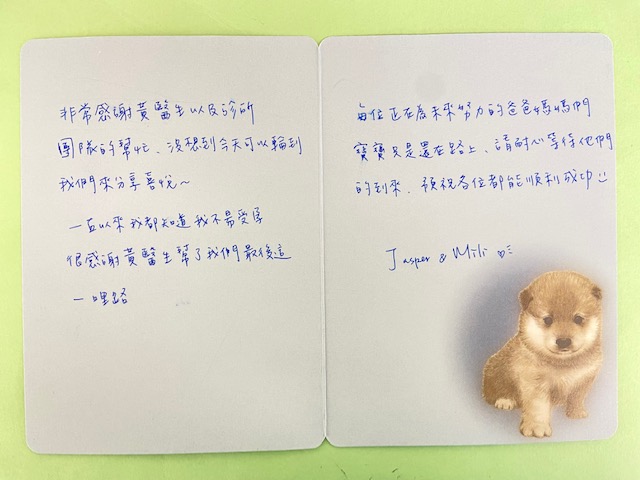 非常感謝黃醫生以及診所
團隊的幫忙、沒想到今天可以輪到
我們來分享喜悅～
一直以來我都知道我不易受孕
很感謝黃醫生幫了我們最後這
一哩路
每位正在為未來努力的爸爸媽媽們
寶寶只是還在路上、請耐心等待他們
的到來、預祝各位都能順利成功
Jasper & Mili